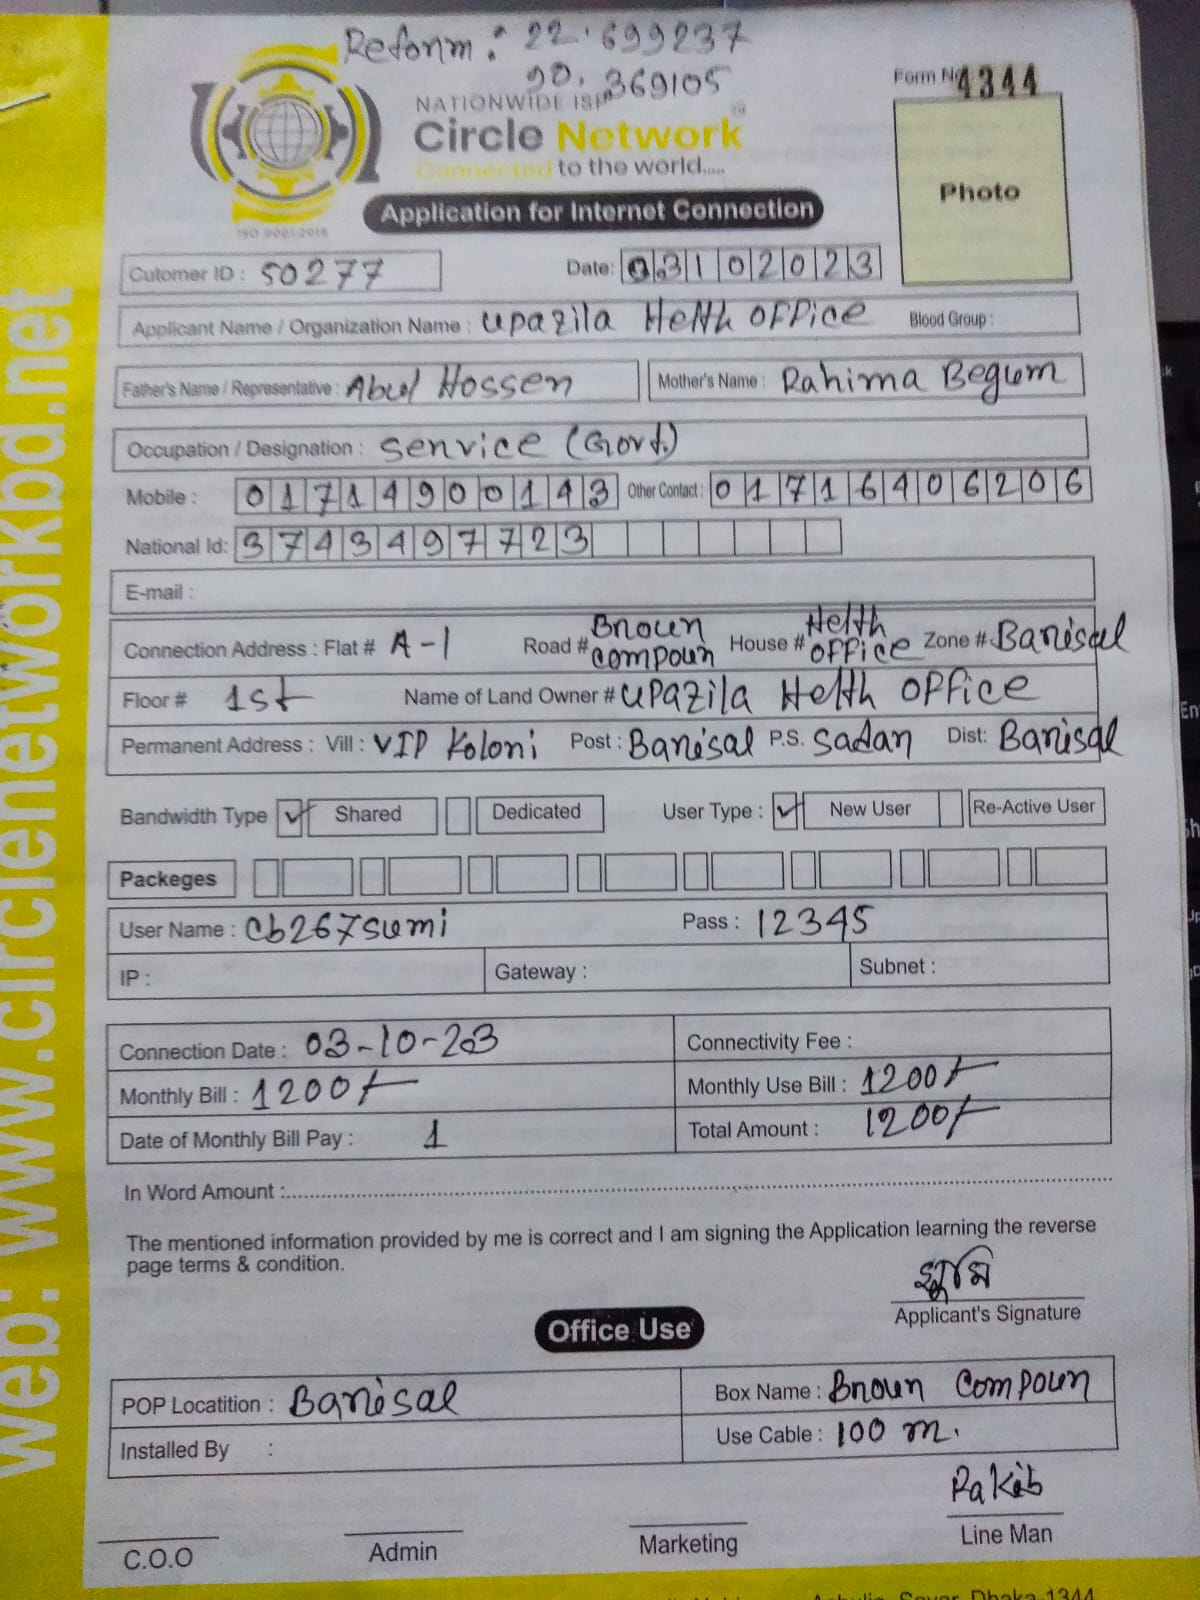 Reform : 22.699237
90.369105
Form No 4344
NATIONWIDE ISP
Circle Network
Connected to the world.....
ISO 9001:2015
Application for Internet Connection
Photo
Cutomer ID : 50277 Date: 03102023
Applicant Name / Organization Name : Upazila Helth Office Blood Group :
Father's Name / Representative : Abul Hossen Mother's Name : Rahima Begum
Occupation / Designation : Service (Govt.)
Mobile : 01714900143 Other Contact : 01716406206
National Id: 3743497723
E-mail :
Connection Address : Flat # A-1 Road # Broun Compoun House # Helth Office Zone # Barisal
Floor # 1st Name of Land Owner # Upazila Helth Office
Permanent Address : Vill : VIP Koloni Post : Barisal P.S. Sadar Dist: Barisal
Bandwidth Type ✓ Shared Dedicated User Type : ✓ New User Re-Active User
Packeges
User Name : Cb267sumi Pass : 12345
IP : Gateway : Subnet :
Connection Date : 03-10-23 Connectivity Fee :
Monthly Bill : 1200/- Monthly Use Bill : 1200/-
Date of Monthly Bill Pay : 1 Total Amount : 1200/-
In Word Amount :
The mentioned information provided by me is correct and I am signing the Application learning the reverse
page terms & condition.
সুমি
Applicant's Signature
Office Use
POP Locatition : Barisal Box Name : Broun Compoun
Installed By : Use Cable : 100 m.
Rakib
C.O.O Admin Marketing Line Man
Dhaka-1344
web: www.circlenetworkbd.net